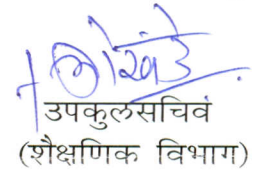 लोखंडे
उपकुलसचिव
(शैक्षणिक विभाग)